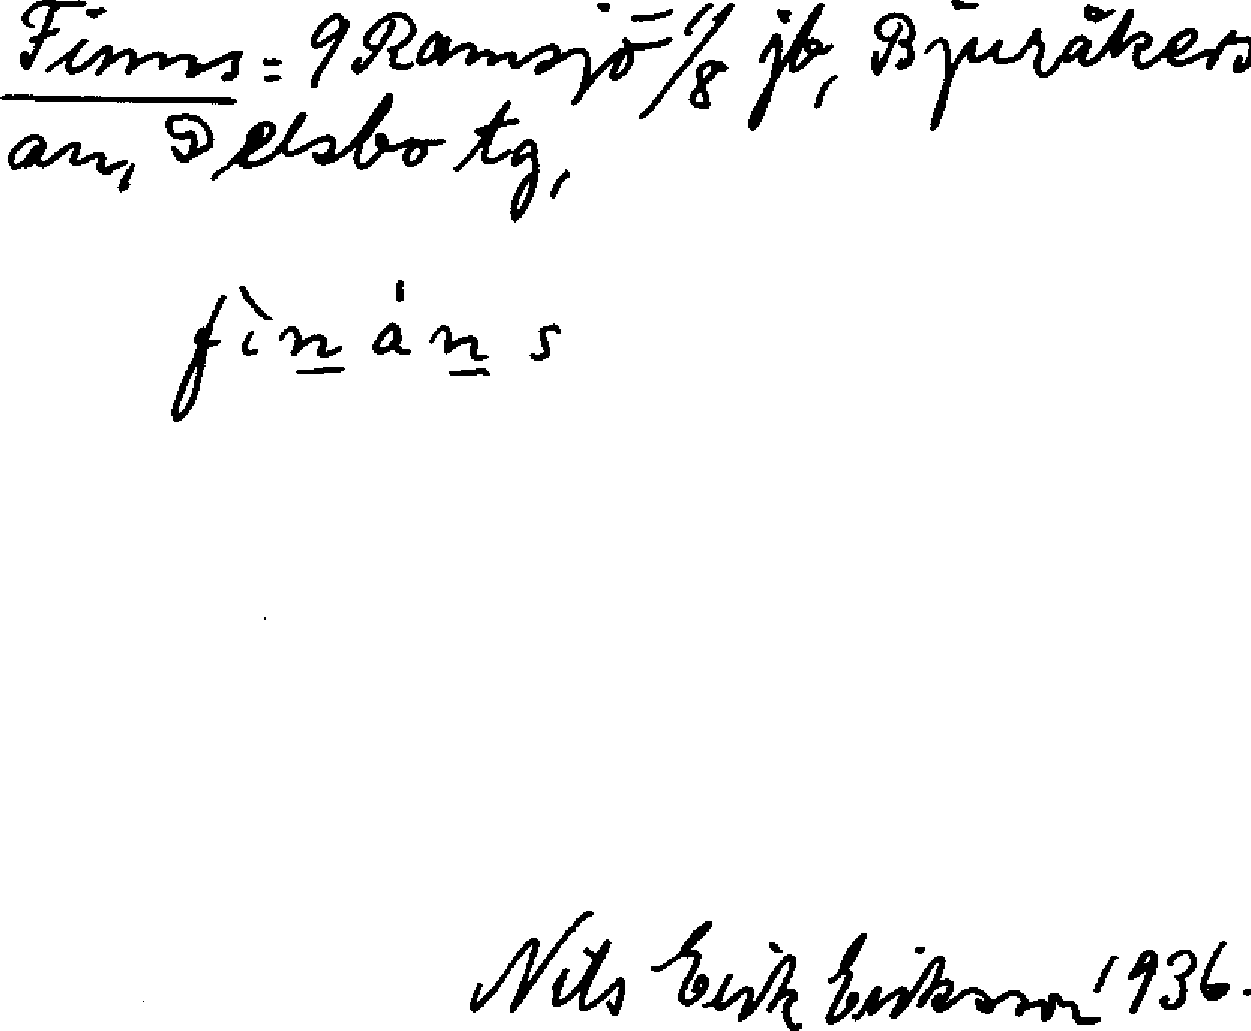 Finns = 9 Ramsjö = 1/8 jb, Bjuråkers
an, Delsbo tg,
fìn̲ án̲ s
Nils Erik Eriksson 1936.